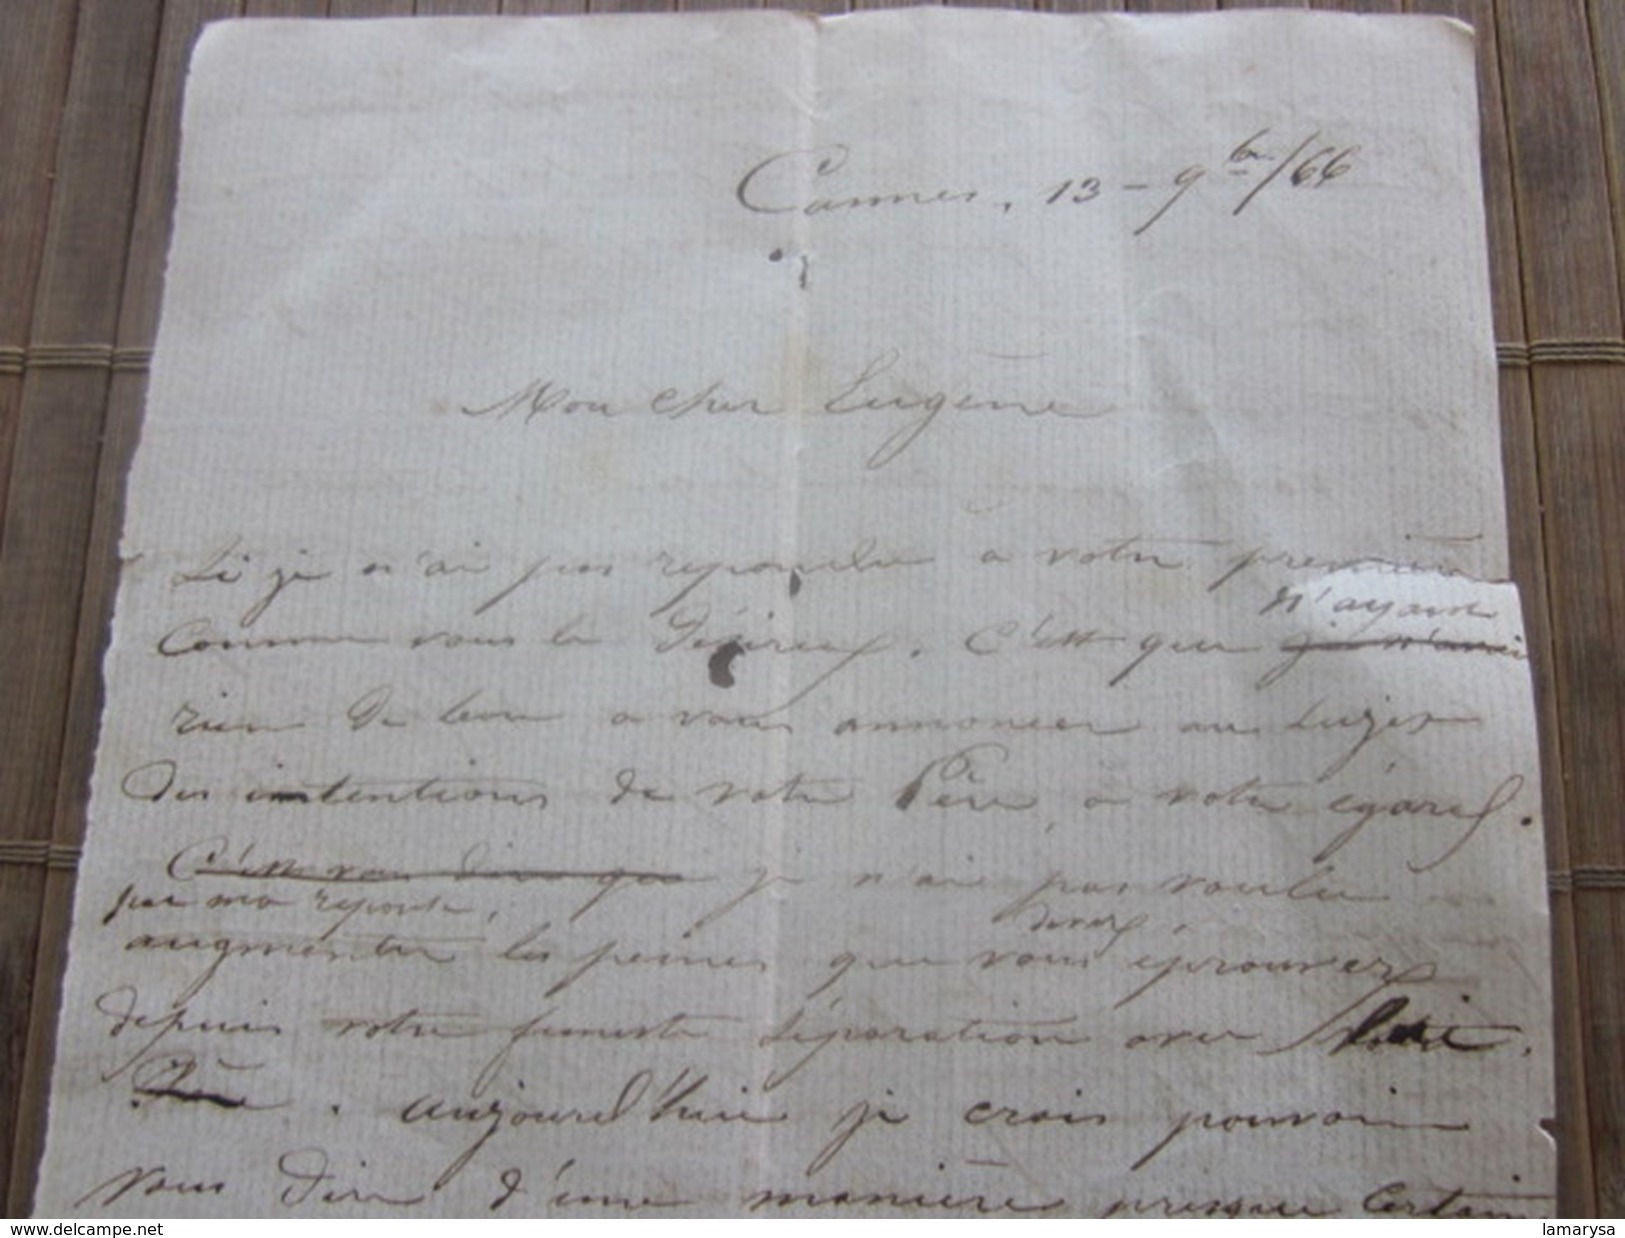 Cannes, 13 - 9bre/66
Mon cher Eugène
Si je n'ai pas repondu a votre première
n'ayant
Comme vous le Désirez. C'est que je n'avais
rien de bon a vous annoncer au sujet
Des intentions de votre Père, a votre égard.
C'est vous dire que je n'ai pas voulu
par ma reponse,
devez,
augmenter les peines que vous éprouvez
depuis votre funeste séparation avec lui.
Père. aujourd'hui je crois pouvoir
vous dire d'une manière presque certaine
www.delcampe.net
lamarysa